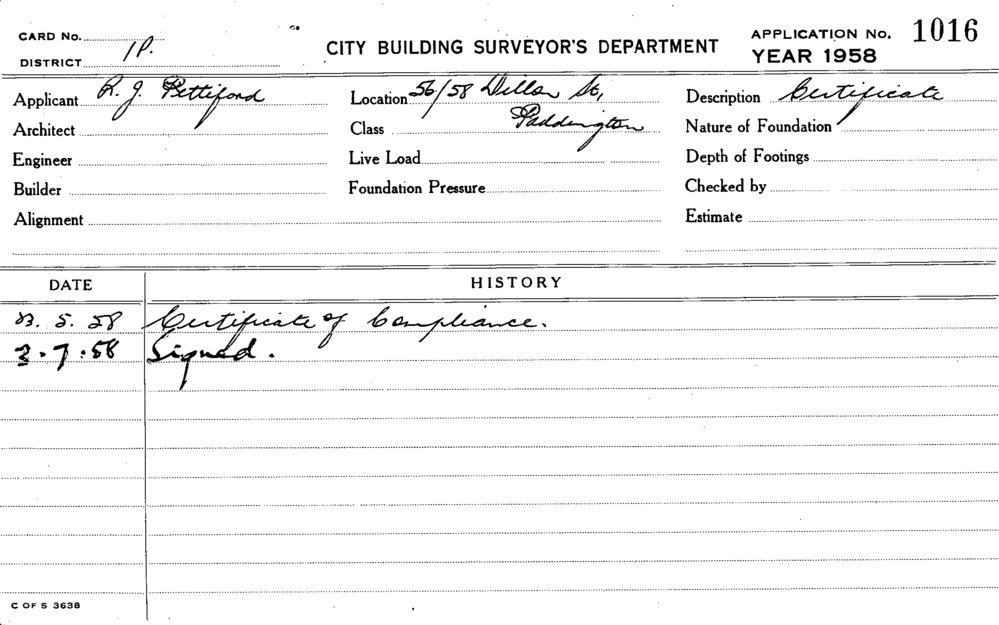 CARD No.
DISTRICT 1P.
CITY BUILDING SURVEYOR'S DEPARTMENT
APPLICATION No. 1016
YEAR 1958
Applicant R. J. Pettiford
Location 56/58 Dillon St,
Description Certificate
Architect
Class Paddington
Nature of Foundation
Engineer
Live Load
Depth of Footings
Builder
Foundation Pressure
Checked by
Alignment
Estimate
DATE HISTORY
5. 58 Certificate of Compliance.
3.7.58 Signed.
C OF S 3638